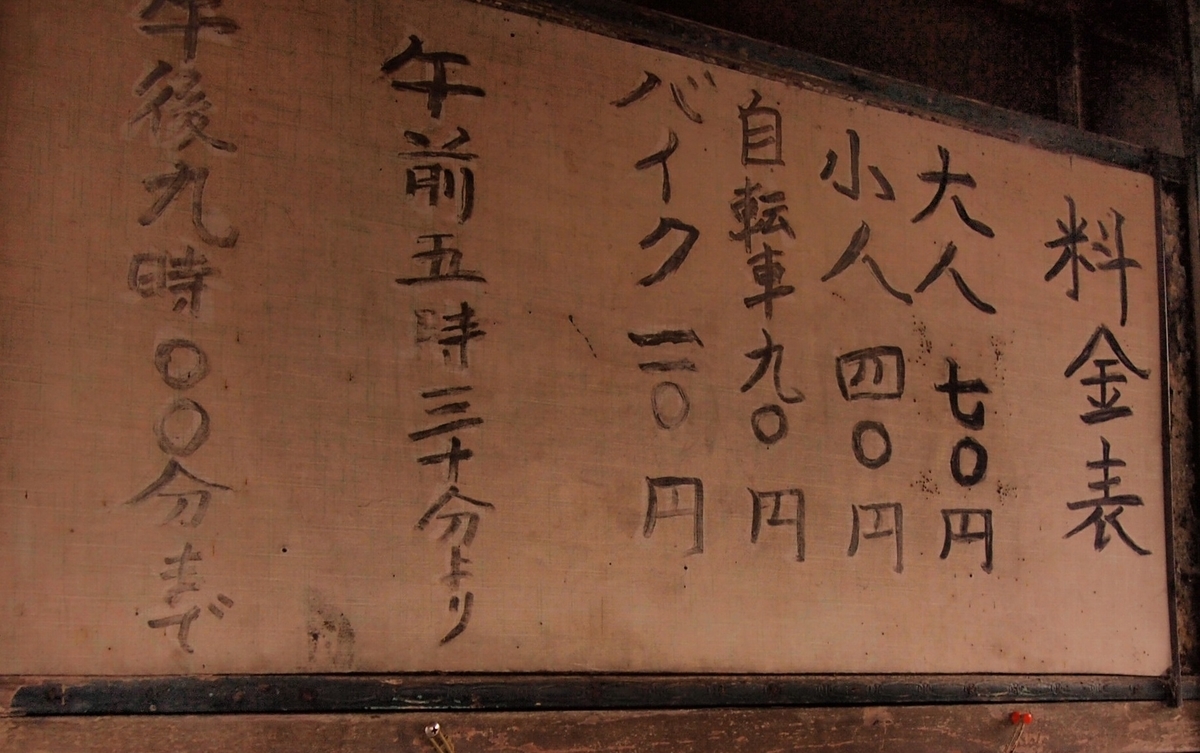 料金表
大人 七〇円
小人 四〇円
自転車 九〇円
バイク 一二〇円
午前五時三十分より
午後九時〇〇分まで